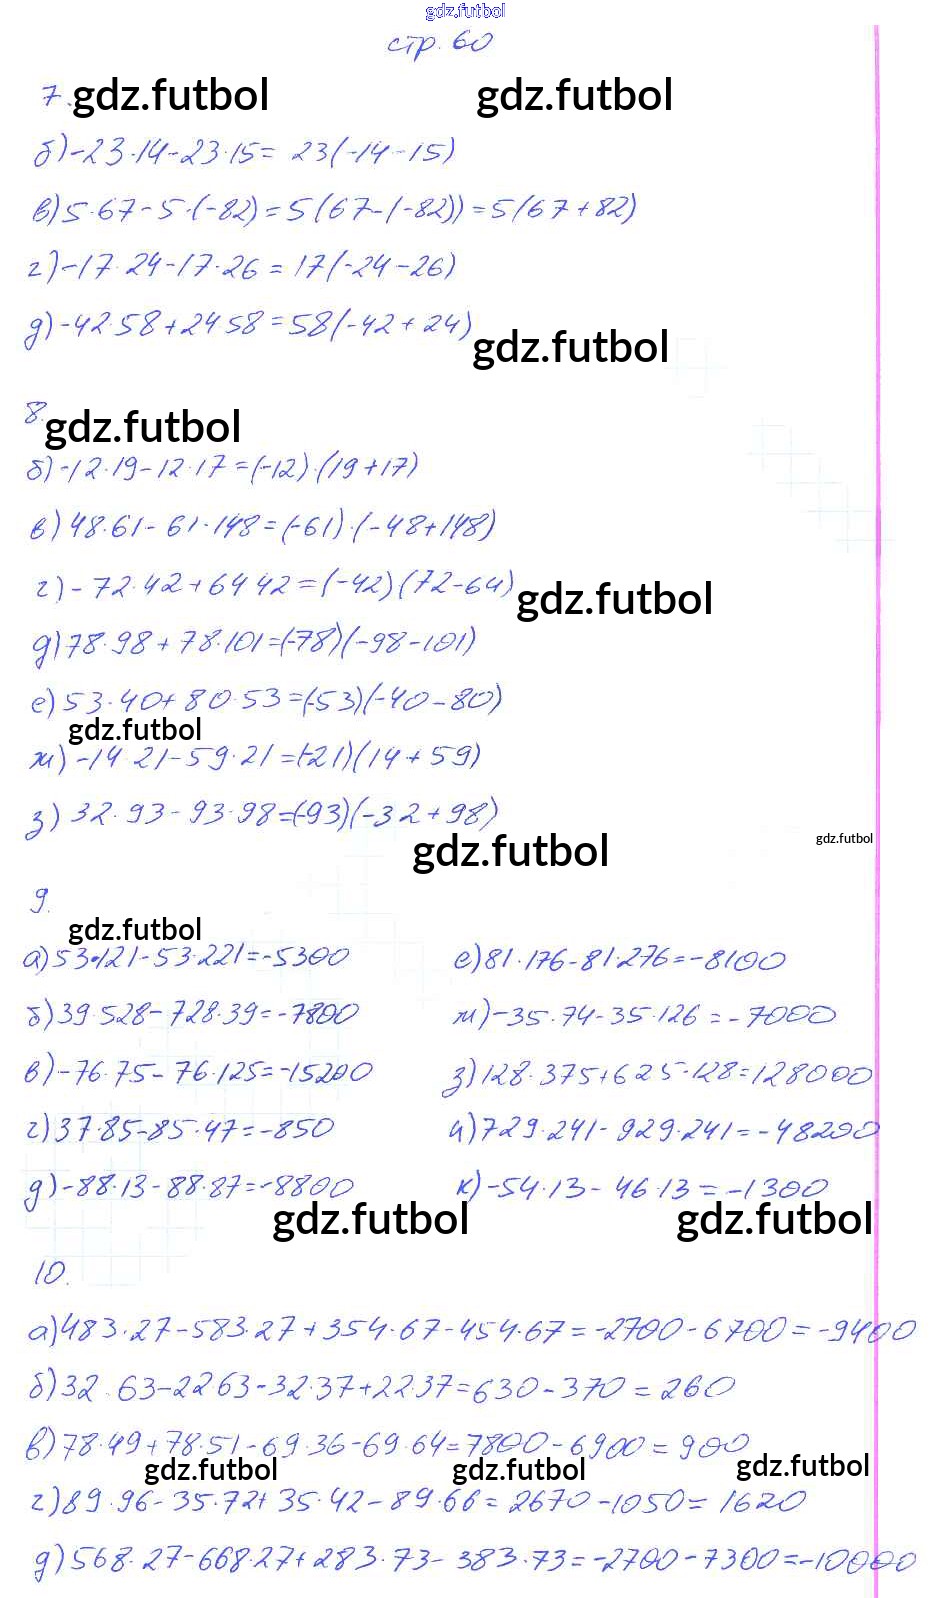 gdz.futbol
стр. 60
7. gdz.futbol gdz.futbol
б) -23·14-23·15= 23(-14-15)
в) 5·67-5·(-82)=5(67-(-82))=5(67+82)
г) -17·24-17·26 = 17(-24-26)
д) -42·58+24 58=58(-42+24)
gdz.futbol
8. gdz.futbol
б) -12·19-12·17=(-12)·(19+17)
в) 48·61-61·148=(-61)·(-48+148)
г) -72·42+64 42=(-42)(72-64)
gdz.futbol
д) 78·98+78·101=(-78)(-98-101)
е) 53·40+80·53=(-53)(-40-80)
gdz.futbol
ж) -14 21-59·21=(-21)(14+59)
з) 32·93-93·98=(-93)(-32+98)
gdz.futbol gdz.futbol
9.
gdz.futbol
а) 53·121-53·221=-5300 е) 81·176-81·276=-8100
б) 39·528-728·39=-7800 ж) -35·74-35·126=-7000
в) -76·75-76·125=-15200 з) 128·375+625·128=128000
г) 37·85-85·47=-850 и) 729·241-929·241=-48200
д) -88·13-88·87=-8800 к) -54·13-46·13=-1300
gdz.futbol gdz.futbol
10.
а) 483·27-583·27+354·67-454·67=-2700-6700=-9400
б) 32·63-22 63-32·37+22·37=630-370=260
в) 78·49+78·51-69·36-69·64=7800-6900=900
gdz.futbol gdz.futbol gdz.futbol
г) 89·96-35·72+35·42-89·66=2670-1050=1620
д) 568·27-668·27+283·73-383·73=-2700-7300=-10000